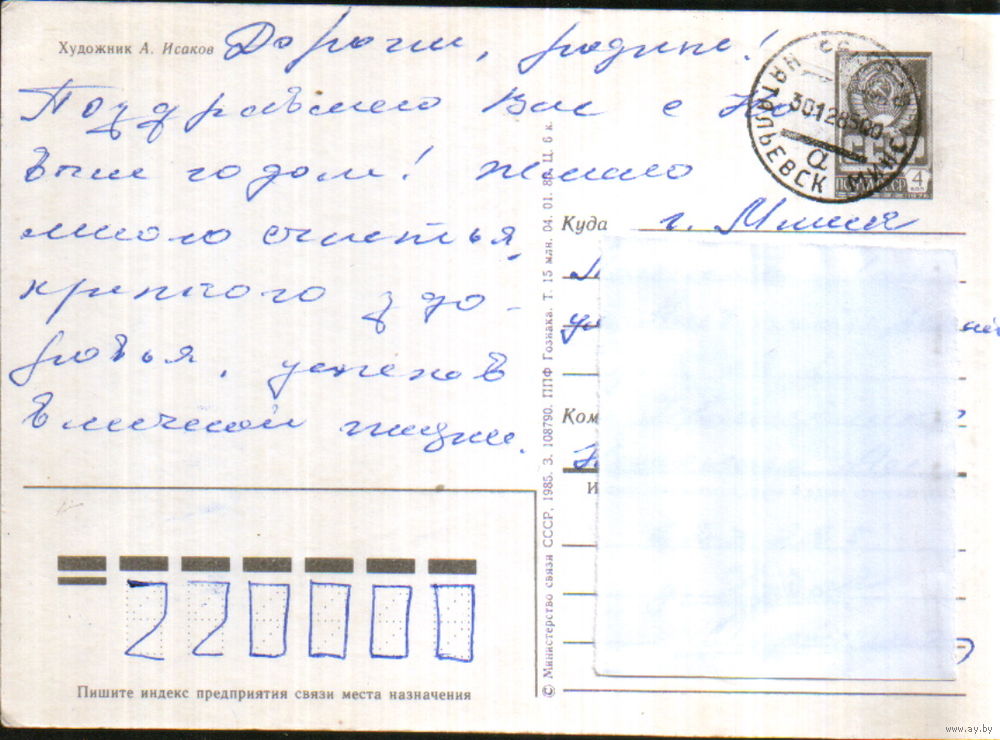 Художник А. Исаков
Дорогие, родные!
Поздравляю Вас с Но
вым годом! Желаю
много счастья,
крепкого здо-
ровья, успехов
в личной жизни.
Куда г. Минск
ул
Ком
И
© Министерство связи СССР, 1985. З. 108790. ППФ Гознака. Т. 15 млн. 04. 01. 85. Ц. 6 к.
30128500
а
МИНСК
СССР
4
220000
Пишите индекс предприятия связи места назначения
www.ay.by